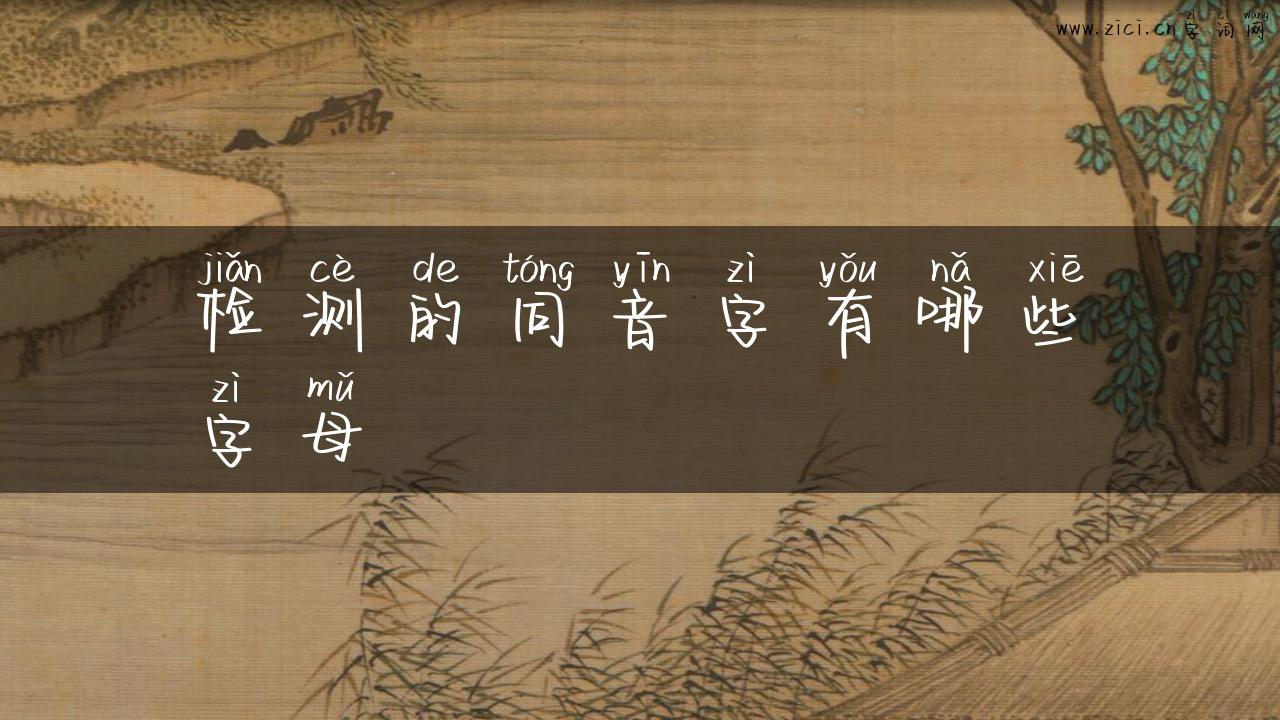 zì cí wǎng
www.zici.cn字词网
jiǎn cè de tóng yīn zì yǒu nǎ xiē
检测的同音字有哪些
zì mǔ
字母